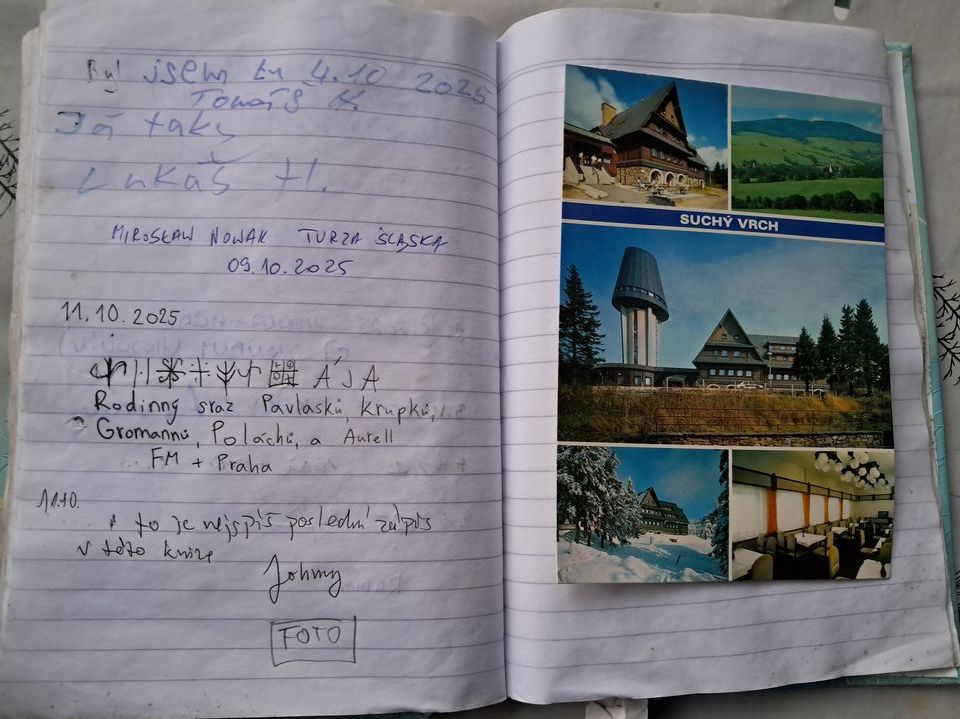 Byl jsem tu 4.10 2025
Tomáš K.
Já taky
Lukáš H.
MIROSŁAW NOWAK TURZA ŚLĄSKA
09.10.2025
11.10.2025
ÁJA
Rodinný sraz Pavlásků, Krupků,
Gromannů, Poláchů, a Aurell
FM + Praha
11.10.
to je nejspíš poslední zápis
v této knize
Johny
FOTO
SUCHÝ VRCH